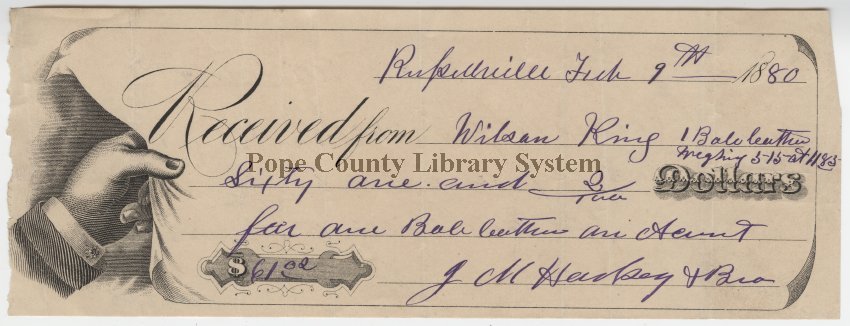 Russellville Feb 9th 1880
Received from Wilson King 1 Bale Cotton
weghing 515 at 11.85
Pope County Library System
Sixty one and 2/100 Dollars
for one Bale Cotton on Acount
$ 61.02
J M Harkey & Bro